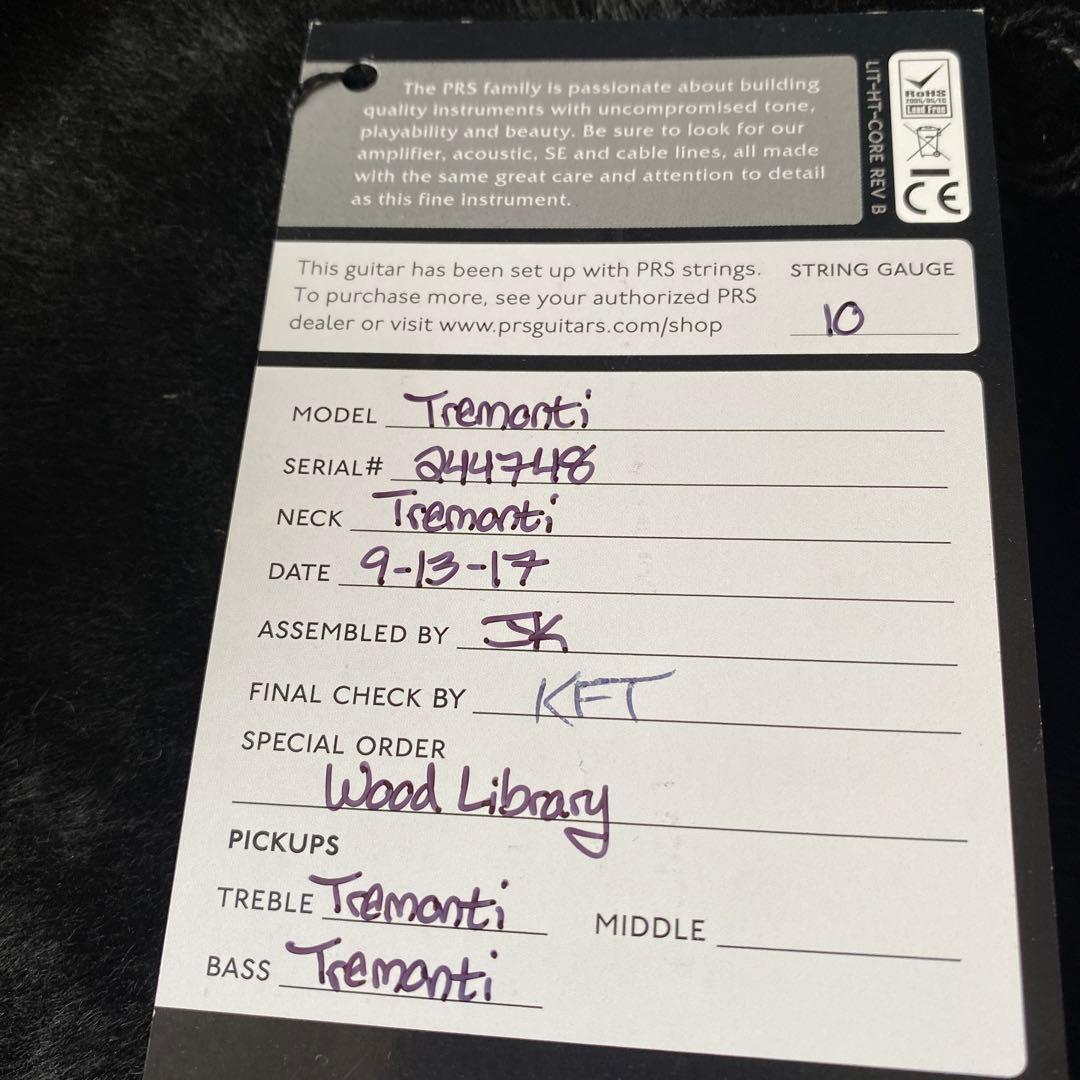 The PRS family is passionate about building
quality instruments with uncompromised tone,
playability and beauty. Be sure to look for our
amplifier, acoustic, SE and cable lines, all made
with the same great care and attention to detail
as this fine instrument.
LIT-HT-CORE REV B
RoHS
2005/95/EC
Lead Free
CE
This guitar has been set up with PRS strings.
To purchase more, see your authorized PRS
dealer or visit www.prsguitars.com/shop
STRING GAUGE
10
MODEL Tremonti
SERIAL# 244748
NECK Tremonti
DATE 9-13-17
ASSEMBLED BY JK
FINAL CHECK BY KFT
SPECIAL ORDER
Wood Library
PICKUPS
TREBLE Tremonti MIDDLE
BASS Tremonti